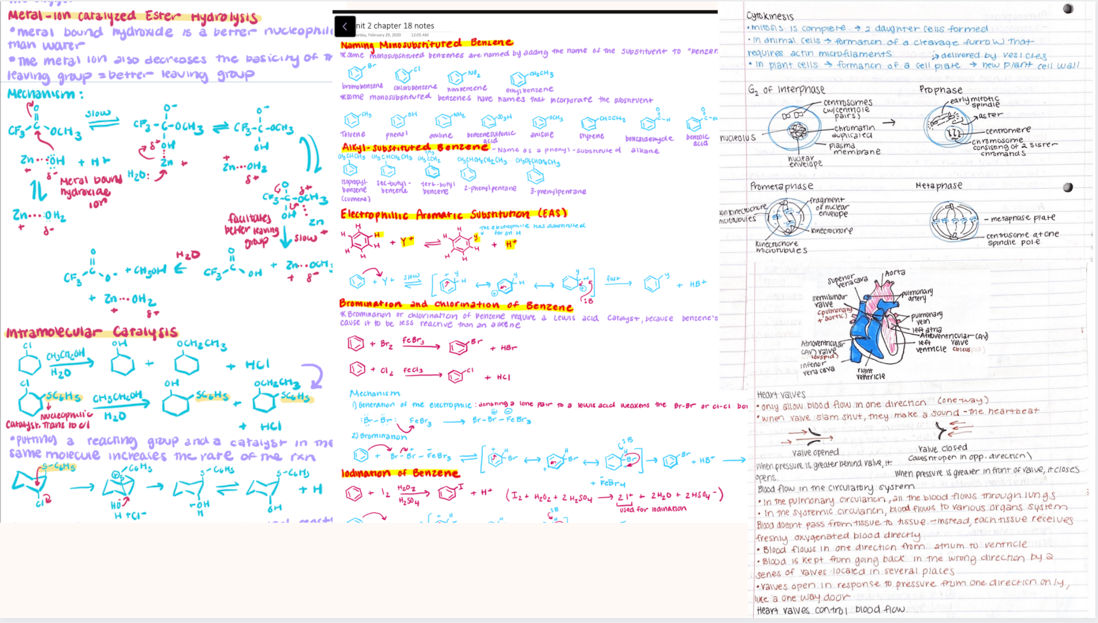 Metal-ion catalyzed Ester Hydrolysis
*metal bound hydroxide is a better nucleophile
than water
*The metal ion also decreases the basicity of
leaving group = better leaving group
Mechanism:
slow
CF₃-C-OCH₃ ⇌ CF₃-C-OCH₃ ⇌ CF₃-C-OCH₃
Metal bound
hydroxide
ion
H₂O:
Zn...OH₂
facilitates
better leaving
group
slow
H₂O
+ CH₃OH
+ Zn...OH₂
Intramolecular Catalysis
Cl
CH₃CH₂OH
H₂O
OH
+
OCH₂CH₃
+ HCl
Cl
SC₆H₅
CH₃CH₂OH
H₂O
OH
SC₆H₅
+
OCH₂CH₃
SC₆H₅
+ HCl
Nucleophilic
Catalyst, trans to Cl
*putting a reacting group and a catalyst in the
same molecule increases the rate of the rxn
unit 2 chapter 18 notes
Naming Monosubstituted Benzene
*some monosubstituted benzenes are named by adding the name of the substituent to "benzen
Br
Cl
NO₂
CH₂CH₃
bromobenzene
chlorobenzene
nitrobenzene
ethylbenzene
*some monosubstituted benzenes have names that incorporate the substituent
toluene
phenol
aniline
benzenesulfonic
acid
anisole
styrene
benzaldehyde
benzoic
acid
Alkyl-substituted Benzene - Name as a phenyl-substituted alkane
isopropyl-
benzene
(cumene)
sec-butyl-
benzene
tert-butyl-
benzene
2-phenylpentane
3-phenylpentane
Electrophillic Aromatic Substitution (EAS)
the electrophile has substituted
for an H
+ Y⁺ ⇌ + H⁺
+ Y⁺
slow
fast
+ HB⁺
:B
Bromination and chlorination of Benzene
*Bromination or chlorination of benzene require a Lewis acid catalyst, because benzene's
cause it to be less reactive than an alkene
+ Br₂
FeBr₃
Br
+ HBr
+ Cl₂
FeCl₃
Cl
+ HCl
Mechanism
1) Generation of the electrophile: donating a lone pair to a lewis acid weakens the Br-Br or Cl-Cl bo
:Br-Br: FeBr₃ → Br-Br-FeBr₃
2) Bromination
+ Br-Br-FeBr₃
:B
Br
+ HB⁺
+ FeBr₄
Iodination of Benzene
+ I₂
H₂O₂
H₂SO₄
I
+ H⁺
(I₂ + H₂O₂ + 2H₂SO₄ → 2I⁺ + 2H₂O + 2HSO₄⁻)
used for iodination
Cytokinesis
• mitosis is complete → 2 daughter cells formed
• In animal cells → formation of a cleavage furrow that
requires actin microfilaments
delivered by vesicles
• In plant cells → formation of a cell plate → new plant cell wall
G₂ of Interphase
centrosomes
(w/centriole
pairs)
chromatin
duplicated
plasma
membrane
nucleolus
nuclear
envelope
Prophase
early mitotic
spindle
aster
centromere
chromosome
consisting of 2 sister
chromatids
Prometaphase
fragment
of nuclear
envelope
kinetochore
nonkinetochore
microtubules
kinetochore
microtubules
Metaphase
metaphase plate
centrosome at one
spindle pole
superior
vena cava
Aorta
semilunar
valve
(pulmonary
+ aortic)
pulmonary
artery
pulmonary
vein
left atria
Atrioventricular (AV)
valve
left
ventricle
Atrioventricular
(AV) valve
inferior
vena cava
right
ventricle
Heart valves
• only allow blood flow in one direction (one-way)
• when valve slam shut, they make a sound - the heartbeat
valve opened
valve closed
cause not open in opp. direction
when pressure is greater behind valve, it
opens
when pressure is greater in front of valve, it closes
Blood flow in the circulatory system
• In the pulmonary circulation, all the blood flows through lungs
• In the systemic circulation, blood flows to various organs system
Blood doesnt pass from tissue to tissue - instead, each tissue receives
freshly oxygenated blood directly
• Blood flows in one direction from atrium to ventricle
• Blood is kept from going back in the wrong direction by a
series of valves located in several places
• valves open in response to pressure from one direction only,
like a one way door
Heart valves control blood flow